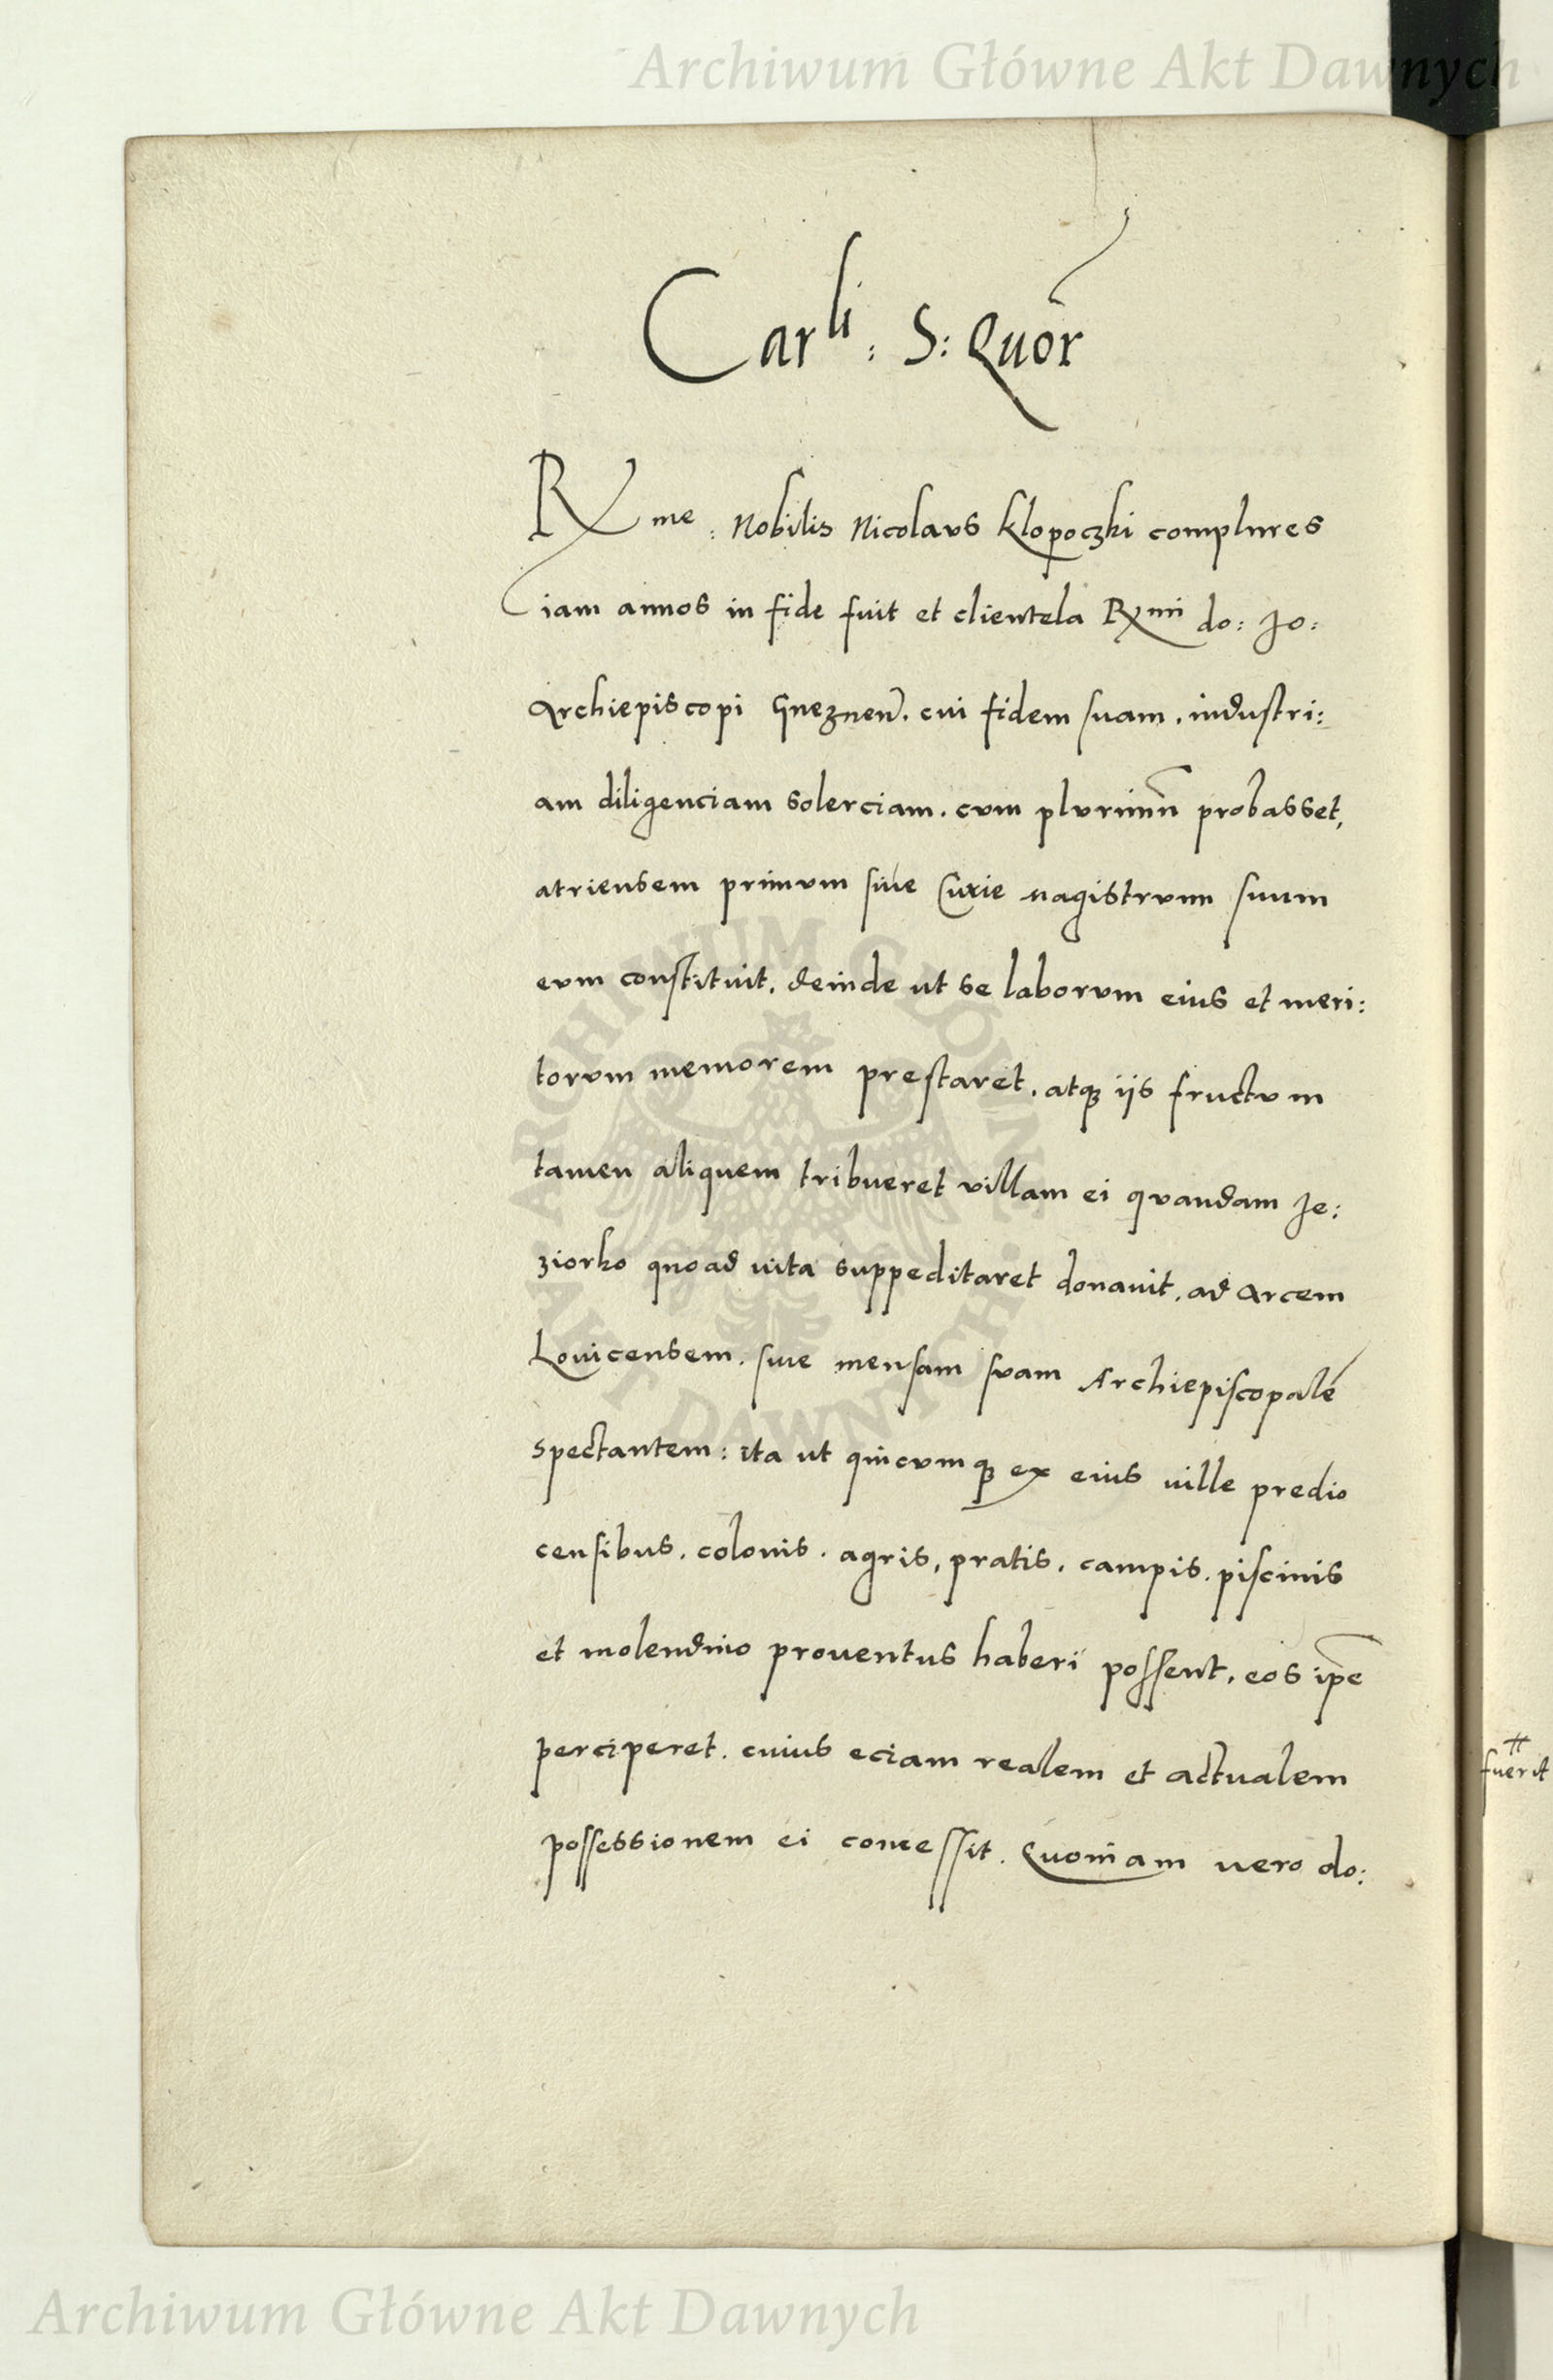 Archiwum Główne Akt Dawnych
Carli: S: Quor̄
Rxme: Nobilis Nicolaus Klopoczki complures
iam annos in fide fuit et clientela Rxmi do: Jo:
Archiepiscopi Gneznen̄. cui fidem suam, industri:
am diligenciam solerciam. cum plurimū probasset,
atriensem primum siue Curie magistrum suum
eum constituit, deinde ut se laborum eius et meri:
torum memorem prestaret, atq3 iis fructum
tamen aliquem tribueret villam ei quandam Je:
ziorko quoad uita suppeditaret donauit, ad Arcem
Louicensem. siue mensam suam Archiepiscopalē
spectantem: ita ut quicumq3 ex eius uille predio
censibus. colonis. agris, pratis. campis. piscinis
et molendino prouentus haberi possent, eos ip̄e
perciperet. cuius eciam realem et actualem
possessionem ei concessit. Quoniam uero do:
fuerit
ARCHIWUM GŁÓWNE AKT DAWNYCH
Archiwum Główne Akt Dawnych